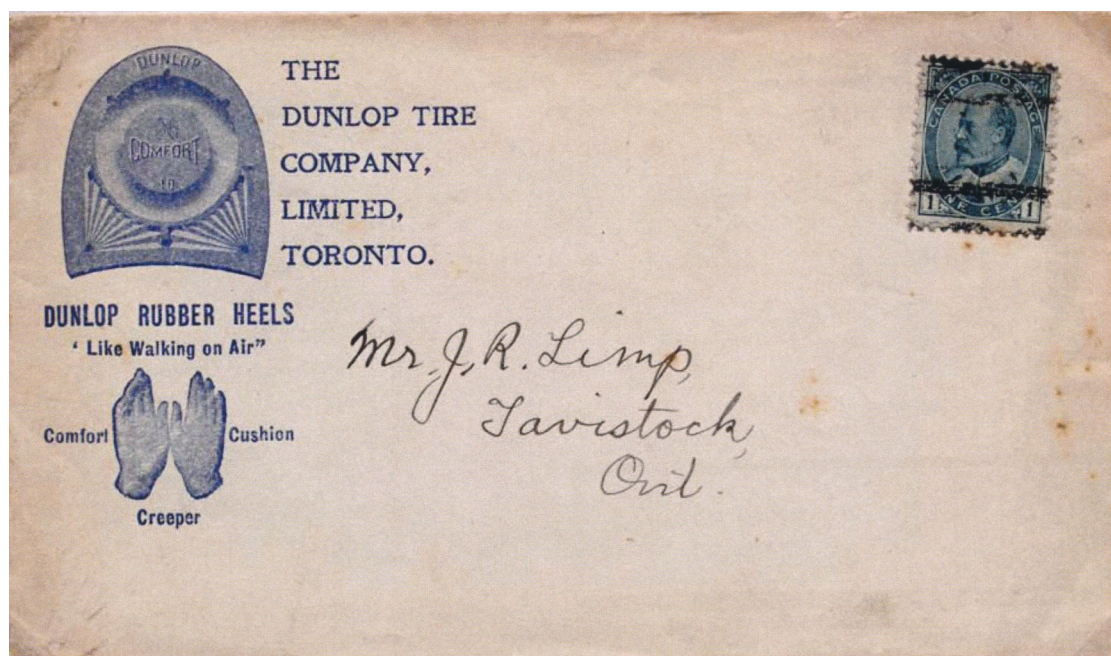 DUNLOP
COMFORT
10
THE
DUNLOP TIRE
COMPANY,
LIMITED,
TORONTO.
DUNLOP RUBBER HEELS
‘ Like Walking on Air”
Comfort Cushion
Creeper
CANADA POSTAGE
1 ONE CENT 1
Mr. J. R. Limp,
Tavistock,
Ont.